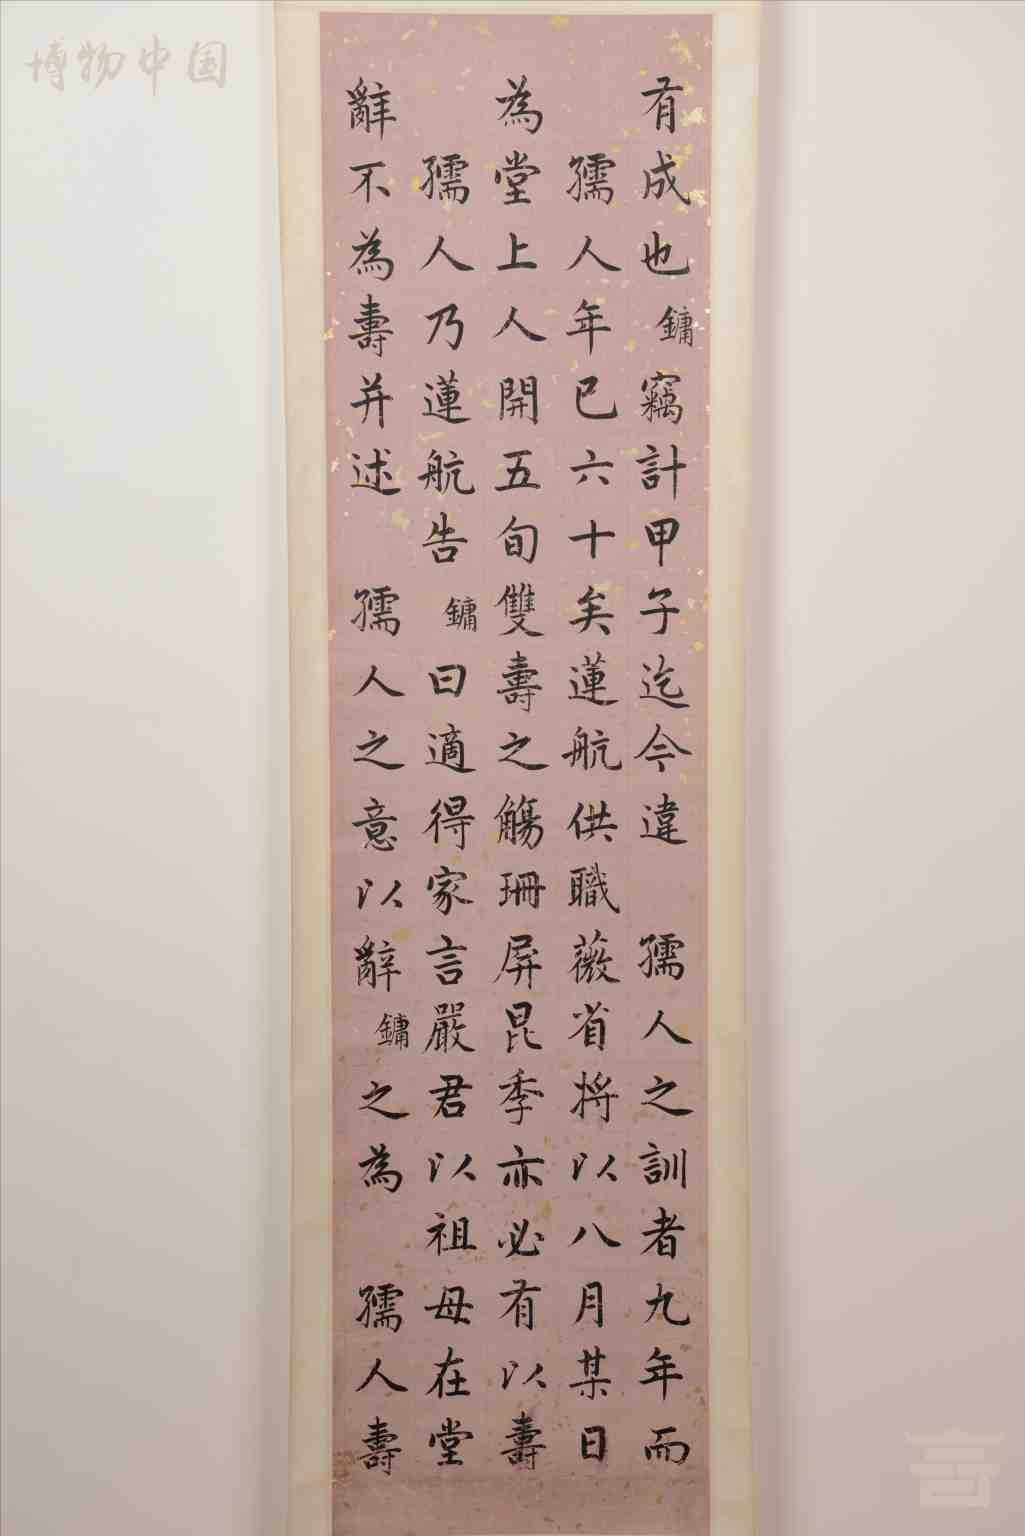 有成也鏞竊計甲子迄今違孺人之訓者九年而
孺人年已六十矣蓮航供職薇省將以八月某日
為堂上人開五旬雙壽之觴珊屏昆季亦必有以壽
孺人乃蓮航告鏞曰適得家言嚴君以祖母在堂
辭不為壽并述孺人之意以辭鏞之為孺人壽
博物中国